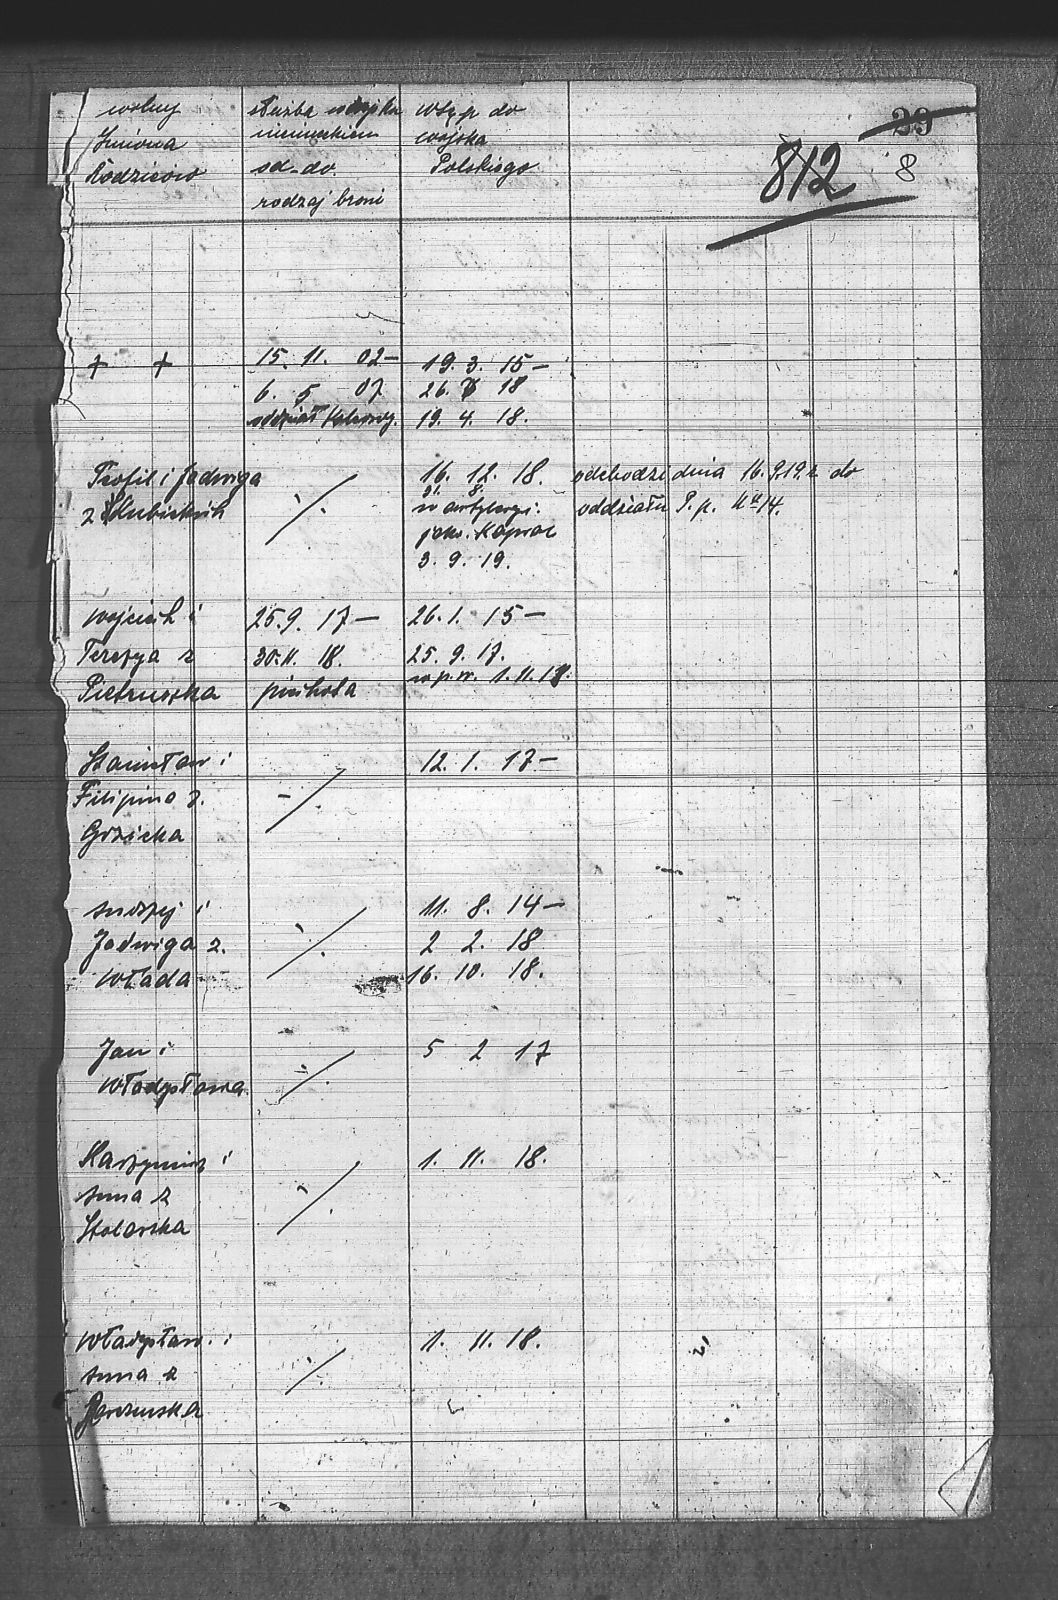 wolny
Imiona
Rodziców
służba wojska
niemieckiem
od-do
rodzaj broni
Wstęp do
wojska
Polskiego
23
812
8
+ +
15. 11. 02-
6. 5 07
oddział
19. 3. 15-
26. 18
19. 4. 18.
Teofil i Jadwiga
z
./.
16. 12. 18.
w artyleryi.
jako
3. 9. 19.
odchodzi dnia 16. 9. 19. r do
oddziału P. p. 14.
Wojciech i
Terezya z
Pietruszka
25. 9. 17-
30. 11. 18.
piechota
26. 1. 15-
25. 9. 17.
w p. w. 1. 11. 18.
Stanisław i
Filipina z.
Grzicka
./.
12. 1. 17-
Andrzej i
Jadwiga z.
Włada
./.
11. 8. 14-
2 2. 18
16. 10. 18.
Jan i
Władysława
./.
5 2 17
Kazymirz i
Anna z
Stolarska
./.
1. 11. 18.
Władysław i
Anna z
./.
1. 11. 18.